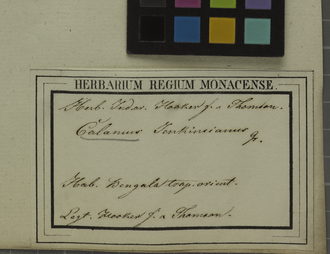 HERBARIUM REGIUM MONACENSE.
Herb. Indor. Hooker f. a Thomson.
Calamus Jenkinsianus
Gr.
Hab. Bengala trop. orient.
Legt. Hooker f. a Thomson.